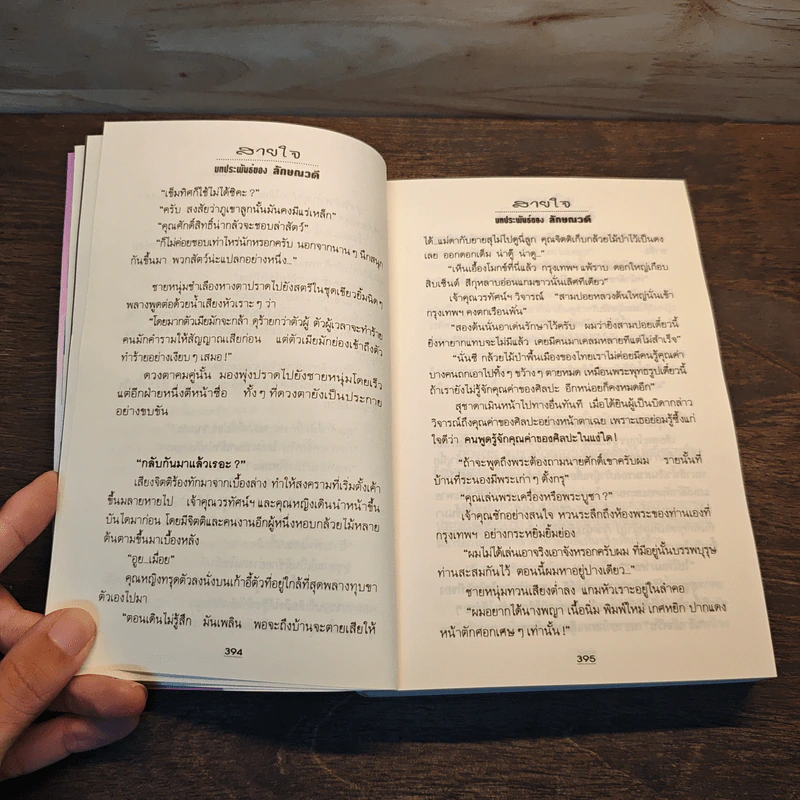 สายใจ
บทประพันธ์ของ ลักษณวดี
“เข็มทิศก็ใช้ไม่ได้ซิคะ ?”
“ครับ สงสัยว่าภูเขาลูกนั้นมันคงมีแร่เหล็ก”
“คุณศักดิ์สิทธิ์น่ากลัวจะชอบล่าสัตว์”
“ก็ไม่ค่อยชอบเท่าไหร่นักหรอกครับ นอกจากนาน ๆ นึกสนุก
กันขึ้นมา พวกสัตว์น่ะแปลกอย่างหนึ่ง...”
ชายหนุ่มชำเลืองหางตาปราดไปยังสตรีในชุดเขียวยิ้มนิด ๆ
พลางพูดต่อด้วยน้ำเสียงหัวเราะ ๆ ว่า
“โดยมากตัวเมียมักจะกล้า ดุร้ายกว่าตัวผู้ ตัวผู้เวลาจะทำร้าย
คนมักคำรามให้สัญญาณเสียก่อน แต่ตัวเมียมักย่องเข้าถึงตัว
ทำร้ายอย่างเงียบ ๆ เสมอ !”
ดวงตาคมคู่นั้น มองพุ่งปราดไปยังชายหนุ่มโดยเร็ว
แต่อีกฝ่ายหนึ่งตีหน้าซื่อ ทั้ง ๆ ที่ดวงตายังเป็นประกาย
อย่างขบขัน
“กลับกันมาแล้วเรอะ ?”
เสียงจิตติร้องทักมาจากเบื้องล่าง ทำให้สงครามที่เริ่มตั้งเค้า
ขึ้นมลายหายไป เจ้าคุณวรทัศน์ฯ และคุณหญิงเดินนำหน้าขึ้น
บันไดมาก่อน โดยมีจิตติและคนงานอีกผู้หนึ่งหอบกล้วยไม้หลาย
ต้นตามขึ้นมาเบื้องหลัง
“อูย...เมื่อย”
คุณหญิงทรุดตัวลงนั่งบนเก้าอี้ตัวที่อยู่ใกล้ที่สุดพลางทุบขา
ตัวเองไปมา
“ตอนเดินไม่รู้สึก มันเพลิน พอจะถึงบ้านจะตายเสียให้
394
สายใจ
บทประพันธ์ของ ลักษณวดี
ได้...แม่ดากับยายสุไม่ไปดูนี่ลูก คุณจิตติเก็บกล้วยไม้ป่าไว้เป็นดง
เลย ออกดอกเต็ม น่าดู๊ น่าดู...”
“เห็นเอื้องโมกข์ที่นี่แล้ว กรุงเทพฯ แพ้ราบ ดอกใหญ่เกือบ
สิบเซ็นต์ สีกุหลาบอ่อนแกมขาวนั่นเลิศทีเดียว”
เจ้าคุณวรทัศน์ฯ วิจารณ์ “สามปอยหลวงต้นใหญ่นั่นเข้า
กรุงเทพฯ คงตกเรือนพัน”
“สองต้นนั่นอาเด่นรักษาไว้ครับ ผมว่ายิ่งสามปอยเดี๋ยวนี้
ยิ่งหายากแทบจะไม่มีแล้ว เคยมีคนมาเคลมหลายทีแต่ไม่สำเร็จ”
“นั่นซี กล้วยไม้ป่าพื้นเมืองของไทยเราไม่ค่อยมีคนรู้คุณค่า
บางคนถกเอาไปทิ้ง ๆ ขว้าง ๆ ตายหมด เหมือนพระพุทธรูปเดี๋ยวนี้
ถ้าเรายังไม่รู้จักคุณค่าของศิลปะ อีกหน่อยก็คงหมดอีก”
สุชาดาเมินหน้าไปทางอื่นทันที เมื่อได้ยินผู้เป็นบิดากล่าว
วิจารณ์ถึงคุณค่าของศิลปะอย่างหน้าตาเฉย เพราะเธอย่อมรู้ซึ้งแก่
ใจดีว่า คนพูดรู้จักคุณค่าของศิลปะในแง่ใด !
“ถ้าจะพูดถึงพระต้องถามนายศักดิ์เขาครับผม รายนั้นที่
บ้านที่ระนองมีพระเก่า ๆ ตั้งกรุ”
“คุณเล่นพระเครื่องหรือพระบูชา ?”
เจ้าคุณซักอย่างสนใจ หวนระลึกถึงห้องพระของท่านเองที่
กรุงเทพฯ อย่างกระหยิ่มยิ้มย่อง
“ผมไม่ได้เล่นเอาจริงเอาจังหรอกครับผม ที่มีอยู่นั้นบรรพบุรุษ
ท่านสะสมกันไว้ ตอนนี้ผมหาอยู่ปางเดียว...”
ชายหนุ่มทวนเสียงต่ำลง แกมหัวเราะอยู่ในลำคอ
“ผมอยากได้นางพญา เนื้อนิ่ม พิมพ์ใหม่ เกศหยิก ปากแดง
หน้าตักศอกเศษ ๆ เท่านั้น !”
395